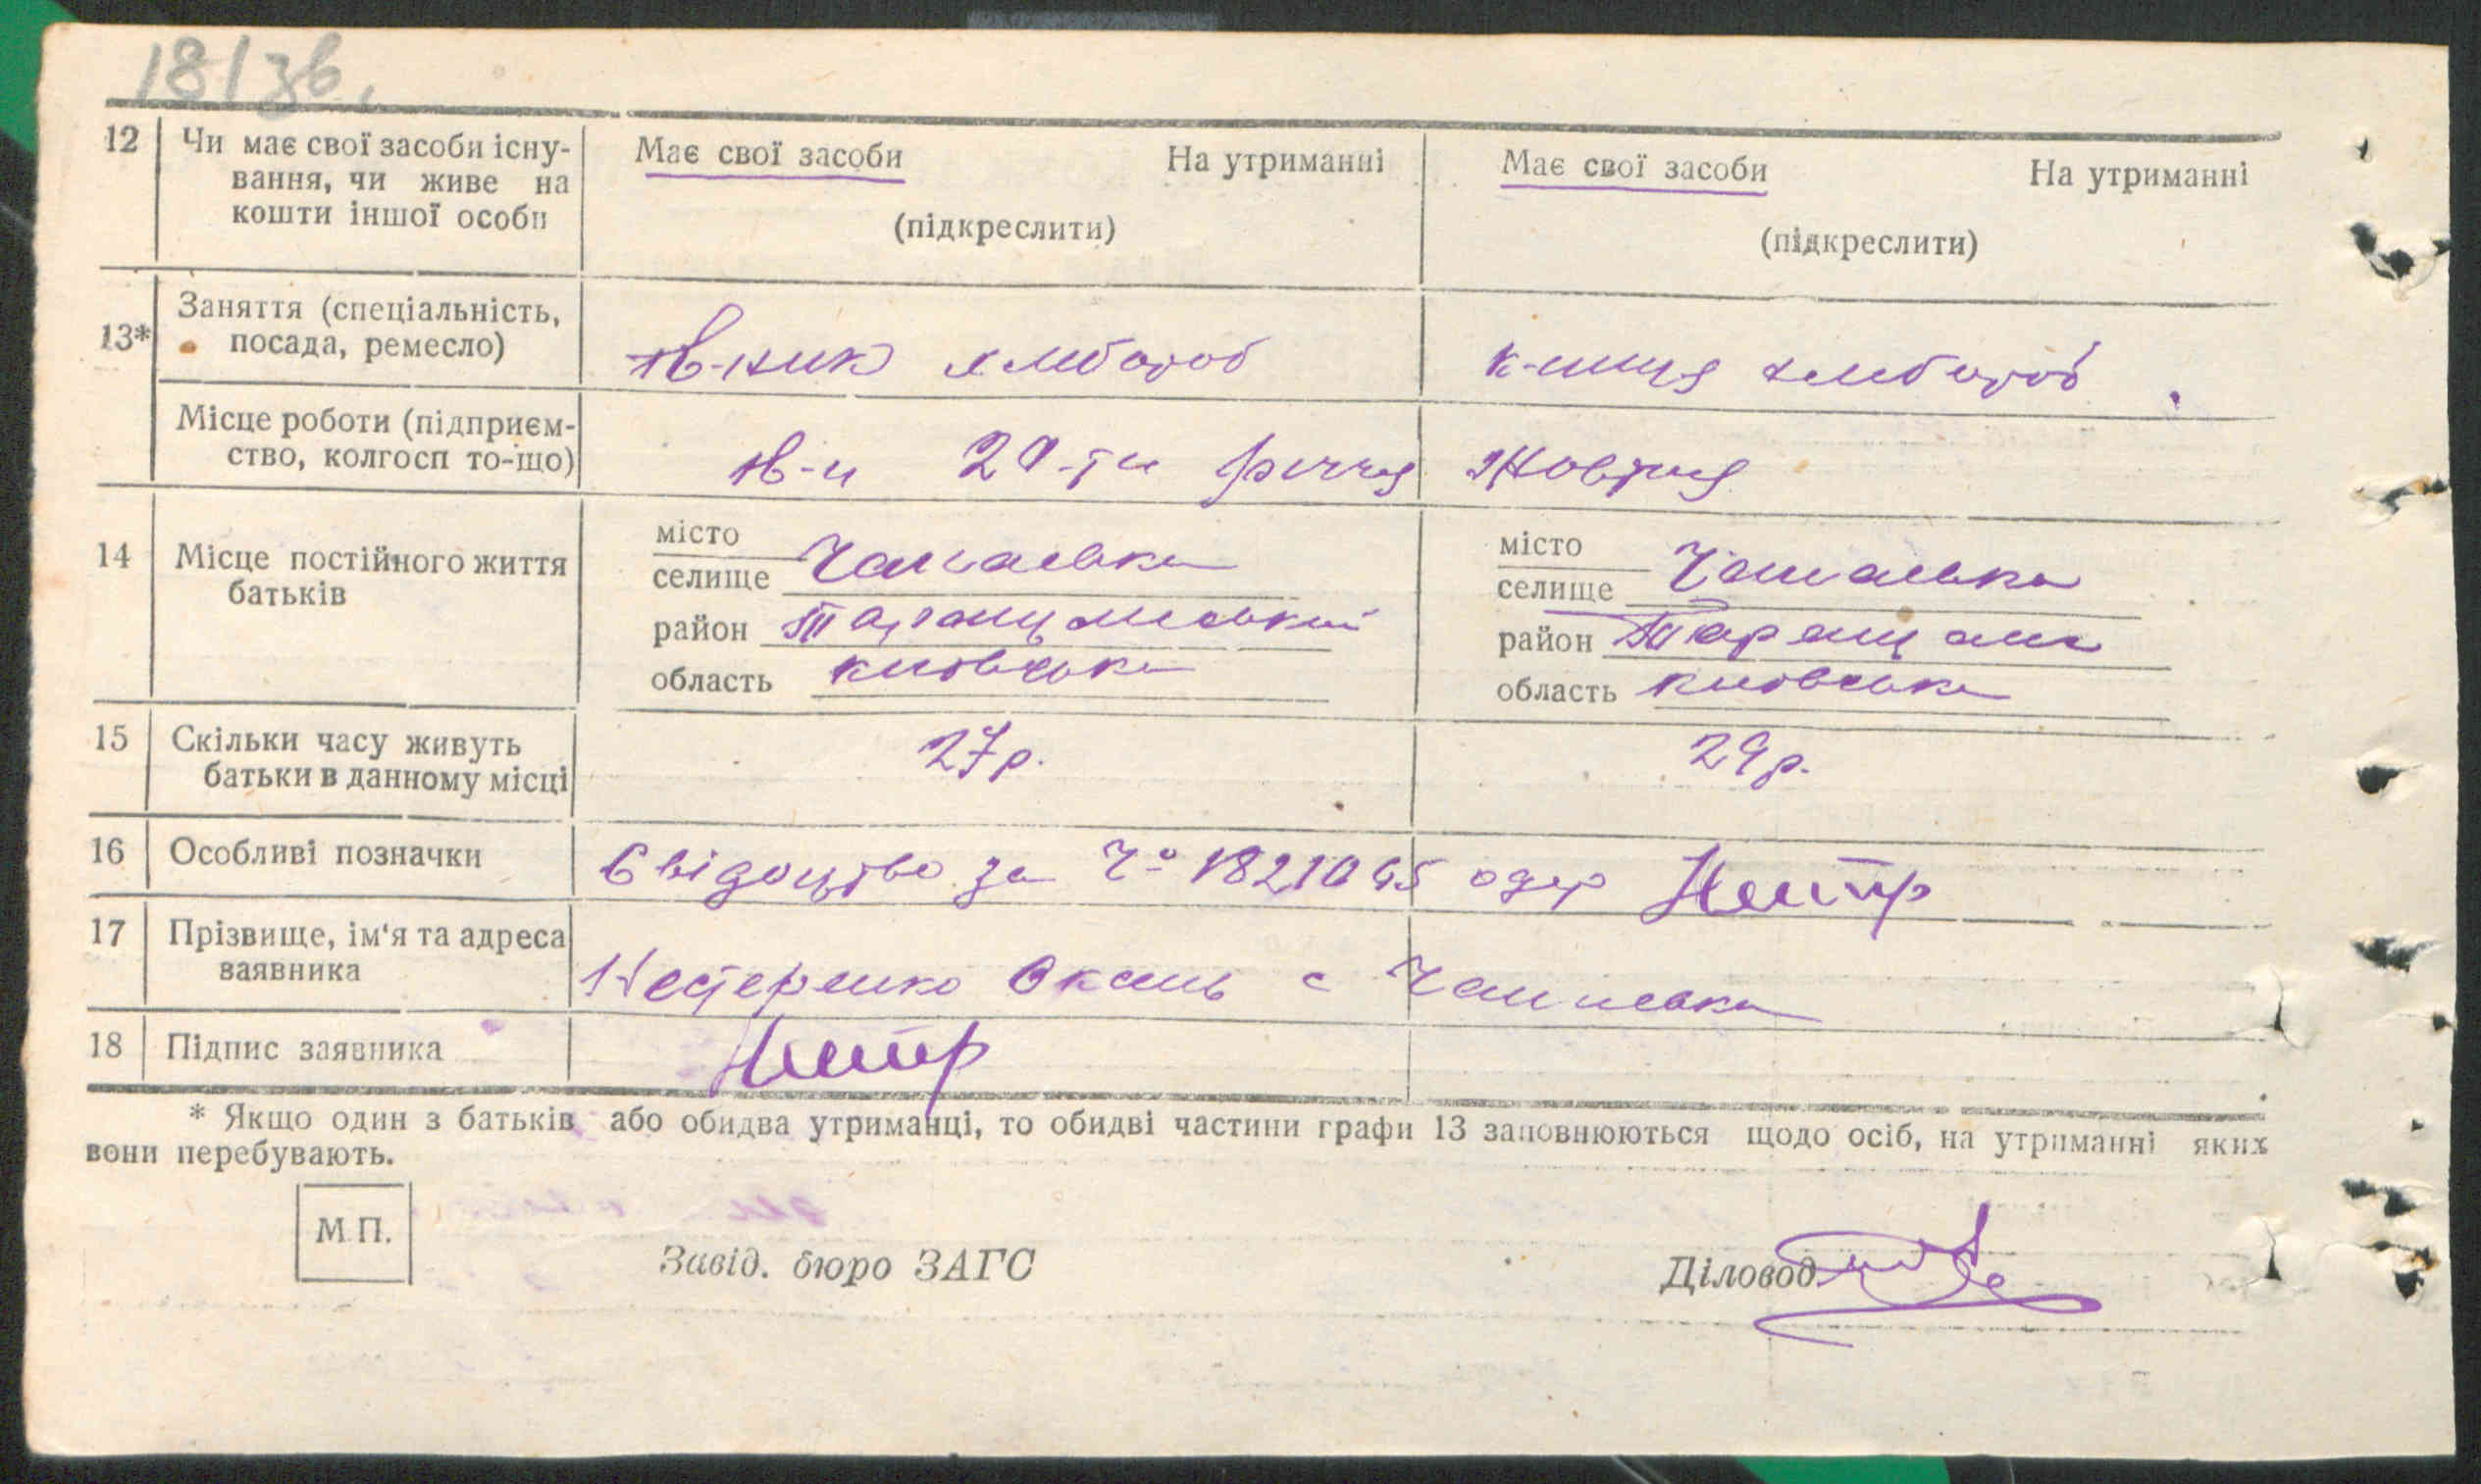 181зв.
12 Чи має свої засоби існу-
вання, чи живе на
кошти іншої особи
Має свої засоби На утриманні
(підкреслити)
Має свої засоби На утриманні
(підкреслити)
13* Заняття (спеціальність,
посада, ремесло)
к-ник хлібороб
к-ниця хлібороб
Місце роботи (підприєм-
ство, колгосп то-що)
20-ти річчя Жовтня
14 Місце постійного життя
батьків
місто
селище
район Таращанський
область київська
місто
селище
район Таращанс
область київська
15 Скільки часу живуть
батьки в данному місці
27р.
29р.
16 Особливі позначки
Свідоцтво за № 1821045 одер
17 Прізвище, ім'я та адреса
заявника
Нестеренко с
18 Підпис заявника
* Якщо один з батьків або обидва утриманці, то обидві частини графи 13 заповнюються щодо осіб, на утриманні яких
вони перебувають.
М.П.
Завід. бюро ЗАГС
Діловод